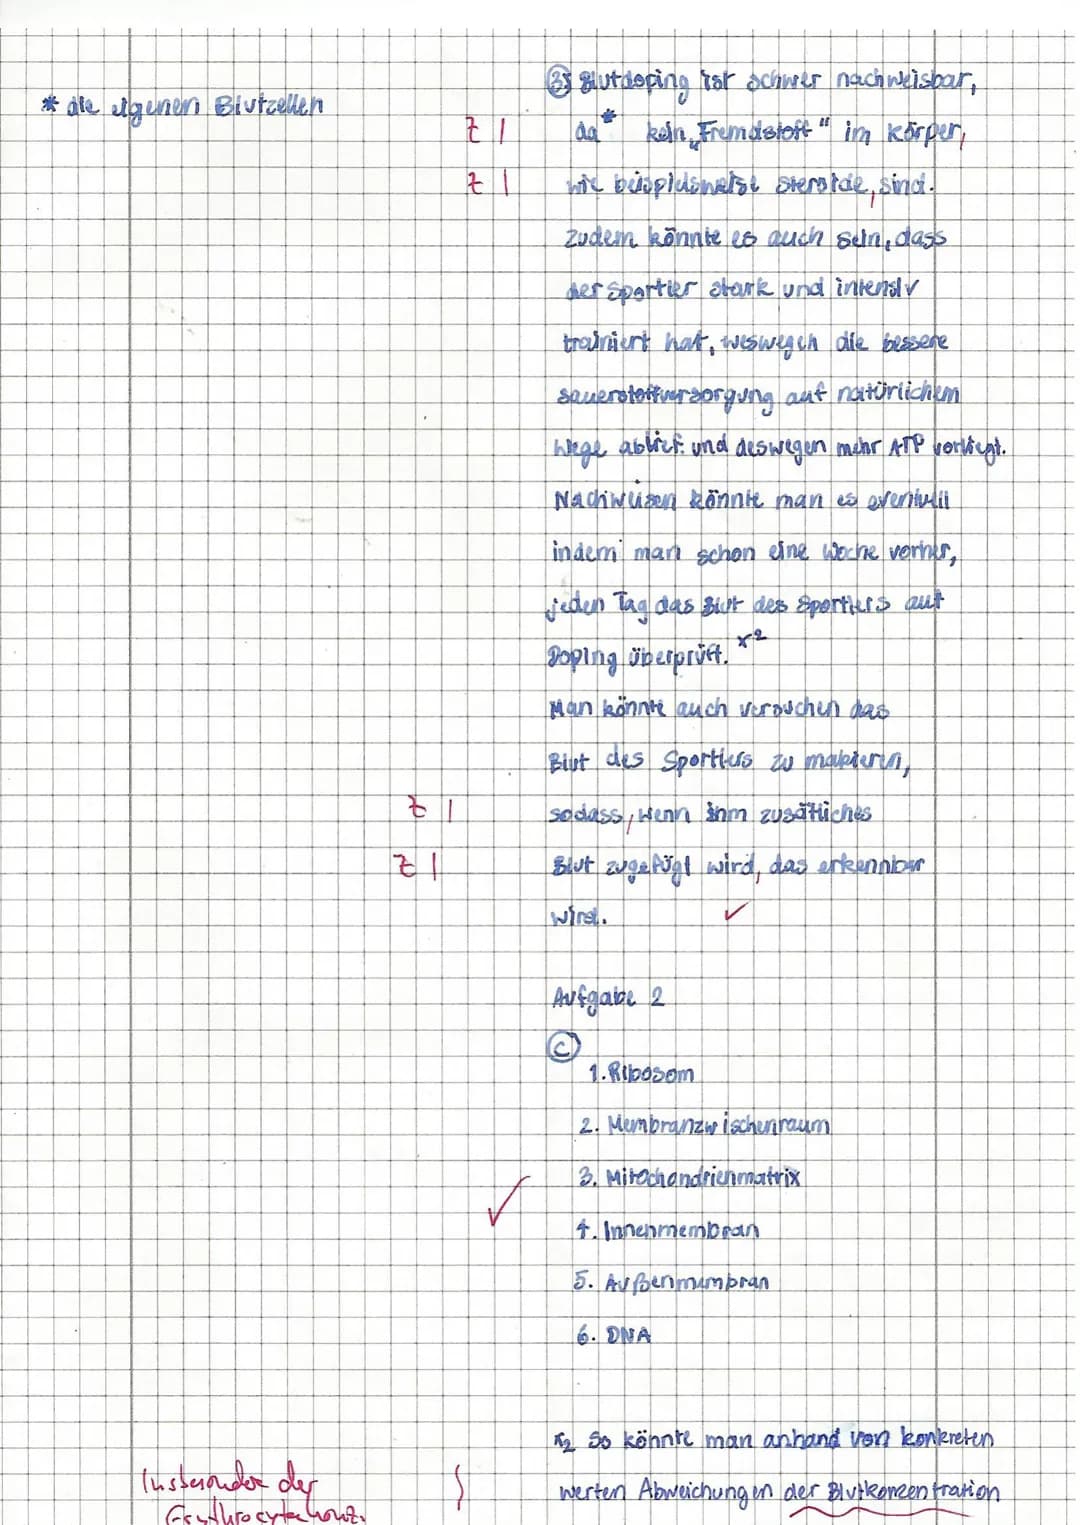 ③ Blutdoping ist schwer nachweisbar,
* die eigenen Blutzellen
Z | da * kein „Fremdstoff" im Körper,
Z | wie beispielsweise Steroide, sind.
Zudem könnte es auch sein, dass
der Sportler stark und intensiv
trainiert hat, weswegen die bessere
Sauerstoffversorgung auf natürlichem
Wege ablief. und deswegen mehr ATP vorliegt.
Nachweisen könnte man es eventuell
indem man schon eine Woche vorher,
jeden Tag das Blut des Sportlers auf
Doping überprüft. x2
Man könnte auch versuchen das
Blut des Sportlers zu makieren,
Z | sodass, wenn ihm zusätliches
Z | Blut zugefügt wird, das erkennbar
wird. ✓
Aufgabe 2
Ⓒ
1. Ribosom
2. Membranzwischenraum
3. Mitochondrienmatrix
✓
4. Innenmembran
5. Außenmembran
6. DNA
x2 So könnte man anhand von konkreten
Insbesondere der
werten Abweichungen der Blutkonzentration
Erythrocytenkonz.